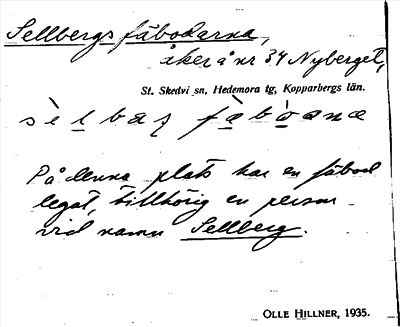 Sellbergs fäbodarna,
åker å nr 34 Nyberget,
St. Skedvi sn, Hedemora tg, Kopparbergs län.
På denna plats har en fäbod
legat, tillhörig en person
vid namn Sellberg.
OLLE HILLNER, 1935.